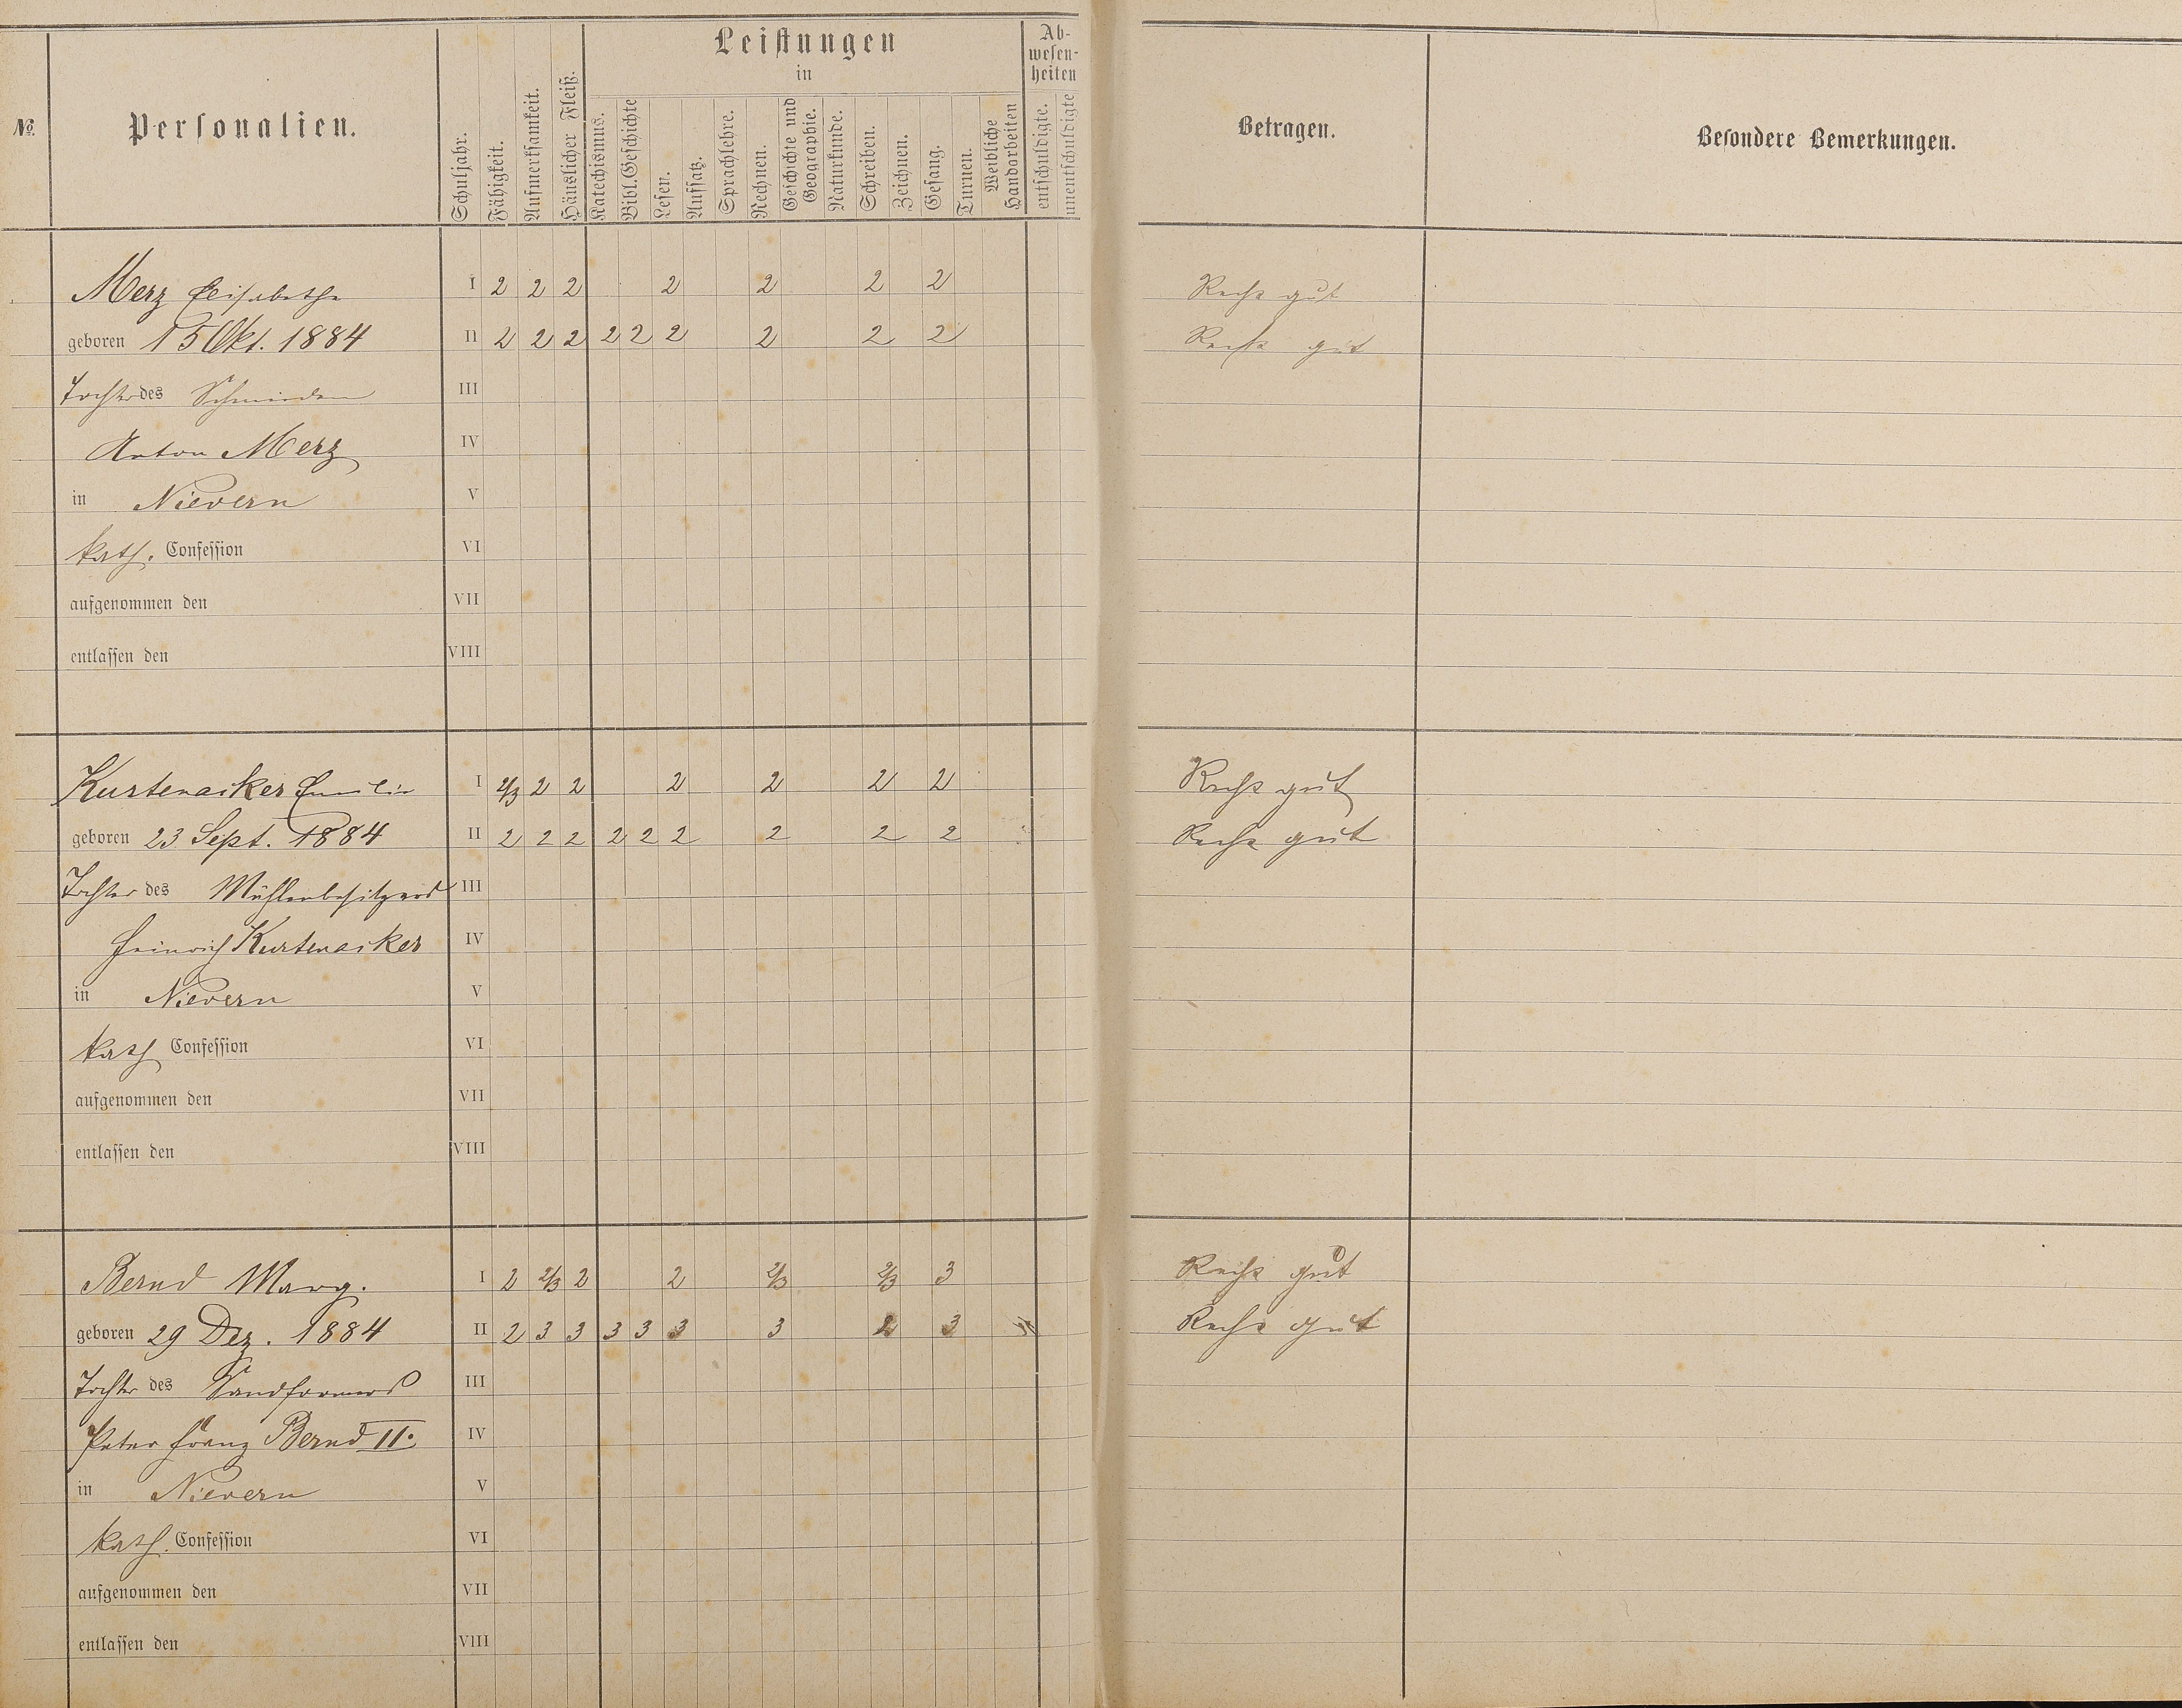 Leistungen
in
Ab-
wesen-
heiten
№
Personalien.
Schuljahr.
Fähigkeit.
Aufmerksamkeit.
Häuslicher Fleiß.
Katechismus.
Bibl. Geschichte
Lesen.
Aufsatz.
Sprachlehre.
Rechnen.
Geschichte und
Geographie.
Naturkunde.
Schreiben.
Zeichnen.
Gesang.
Turnen.
Weibliche
Handarbeiten
entschuldigte.
unentschuldigte
Betragen.
Besondere Bemerkungen.
Merz Elisabetha I 2 2 2 2 2 2 2 Recht gut
geboren 15 Okt. 1884 II 2 2 2 2 2 2 2 2 2 Recht gut
Tochter des III
Anton Merz IV
in Nievern V
kath. Confession VI
aufgenommen den VII
entlassen den VIII
Kurtenacker Emilie I 2/3 2 2 2 2 2 2 Recht gut
geboren 23 Sept. 1884 II 2 2 2 2 2 2 2 2 2 Recht gut
Tochter des Mühlenbesitzers III
Heinrich Kurtenacker IV
in Nievern V
kath Confession VI
aufgenommen den VII
entlassen den VIII
Bernd Marg. I 2 2/3 2 2 2/3 2/3 3 Recht gut
geboren 29 Dez. 1884 II 2 3 3 3 3 3 3 2 3 Recht gut
Tochter des Sandformers III
Peter Franz Bernd II. IV
in Nievern V
kath. Confession VI
aufgenommen den VII
entlassen den VIII